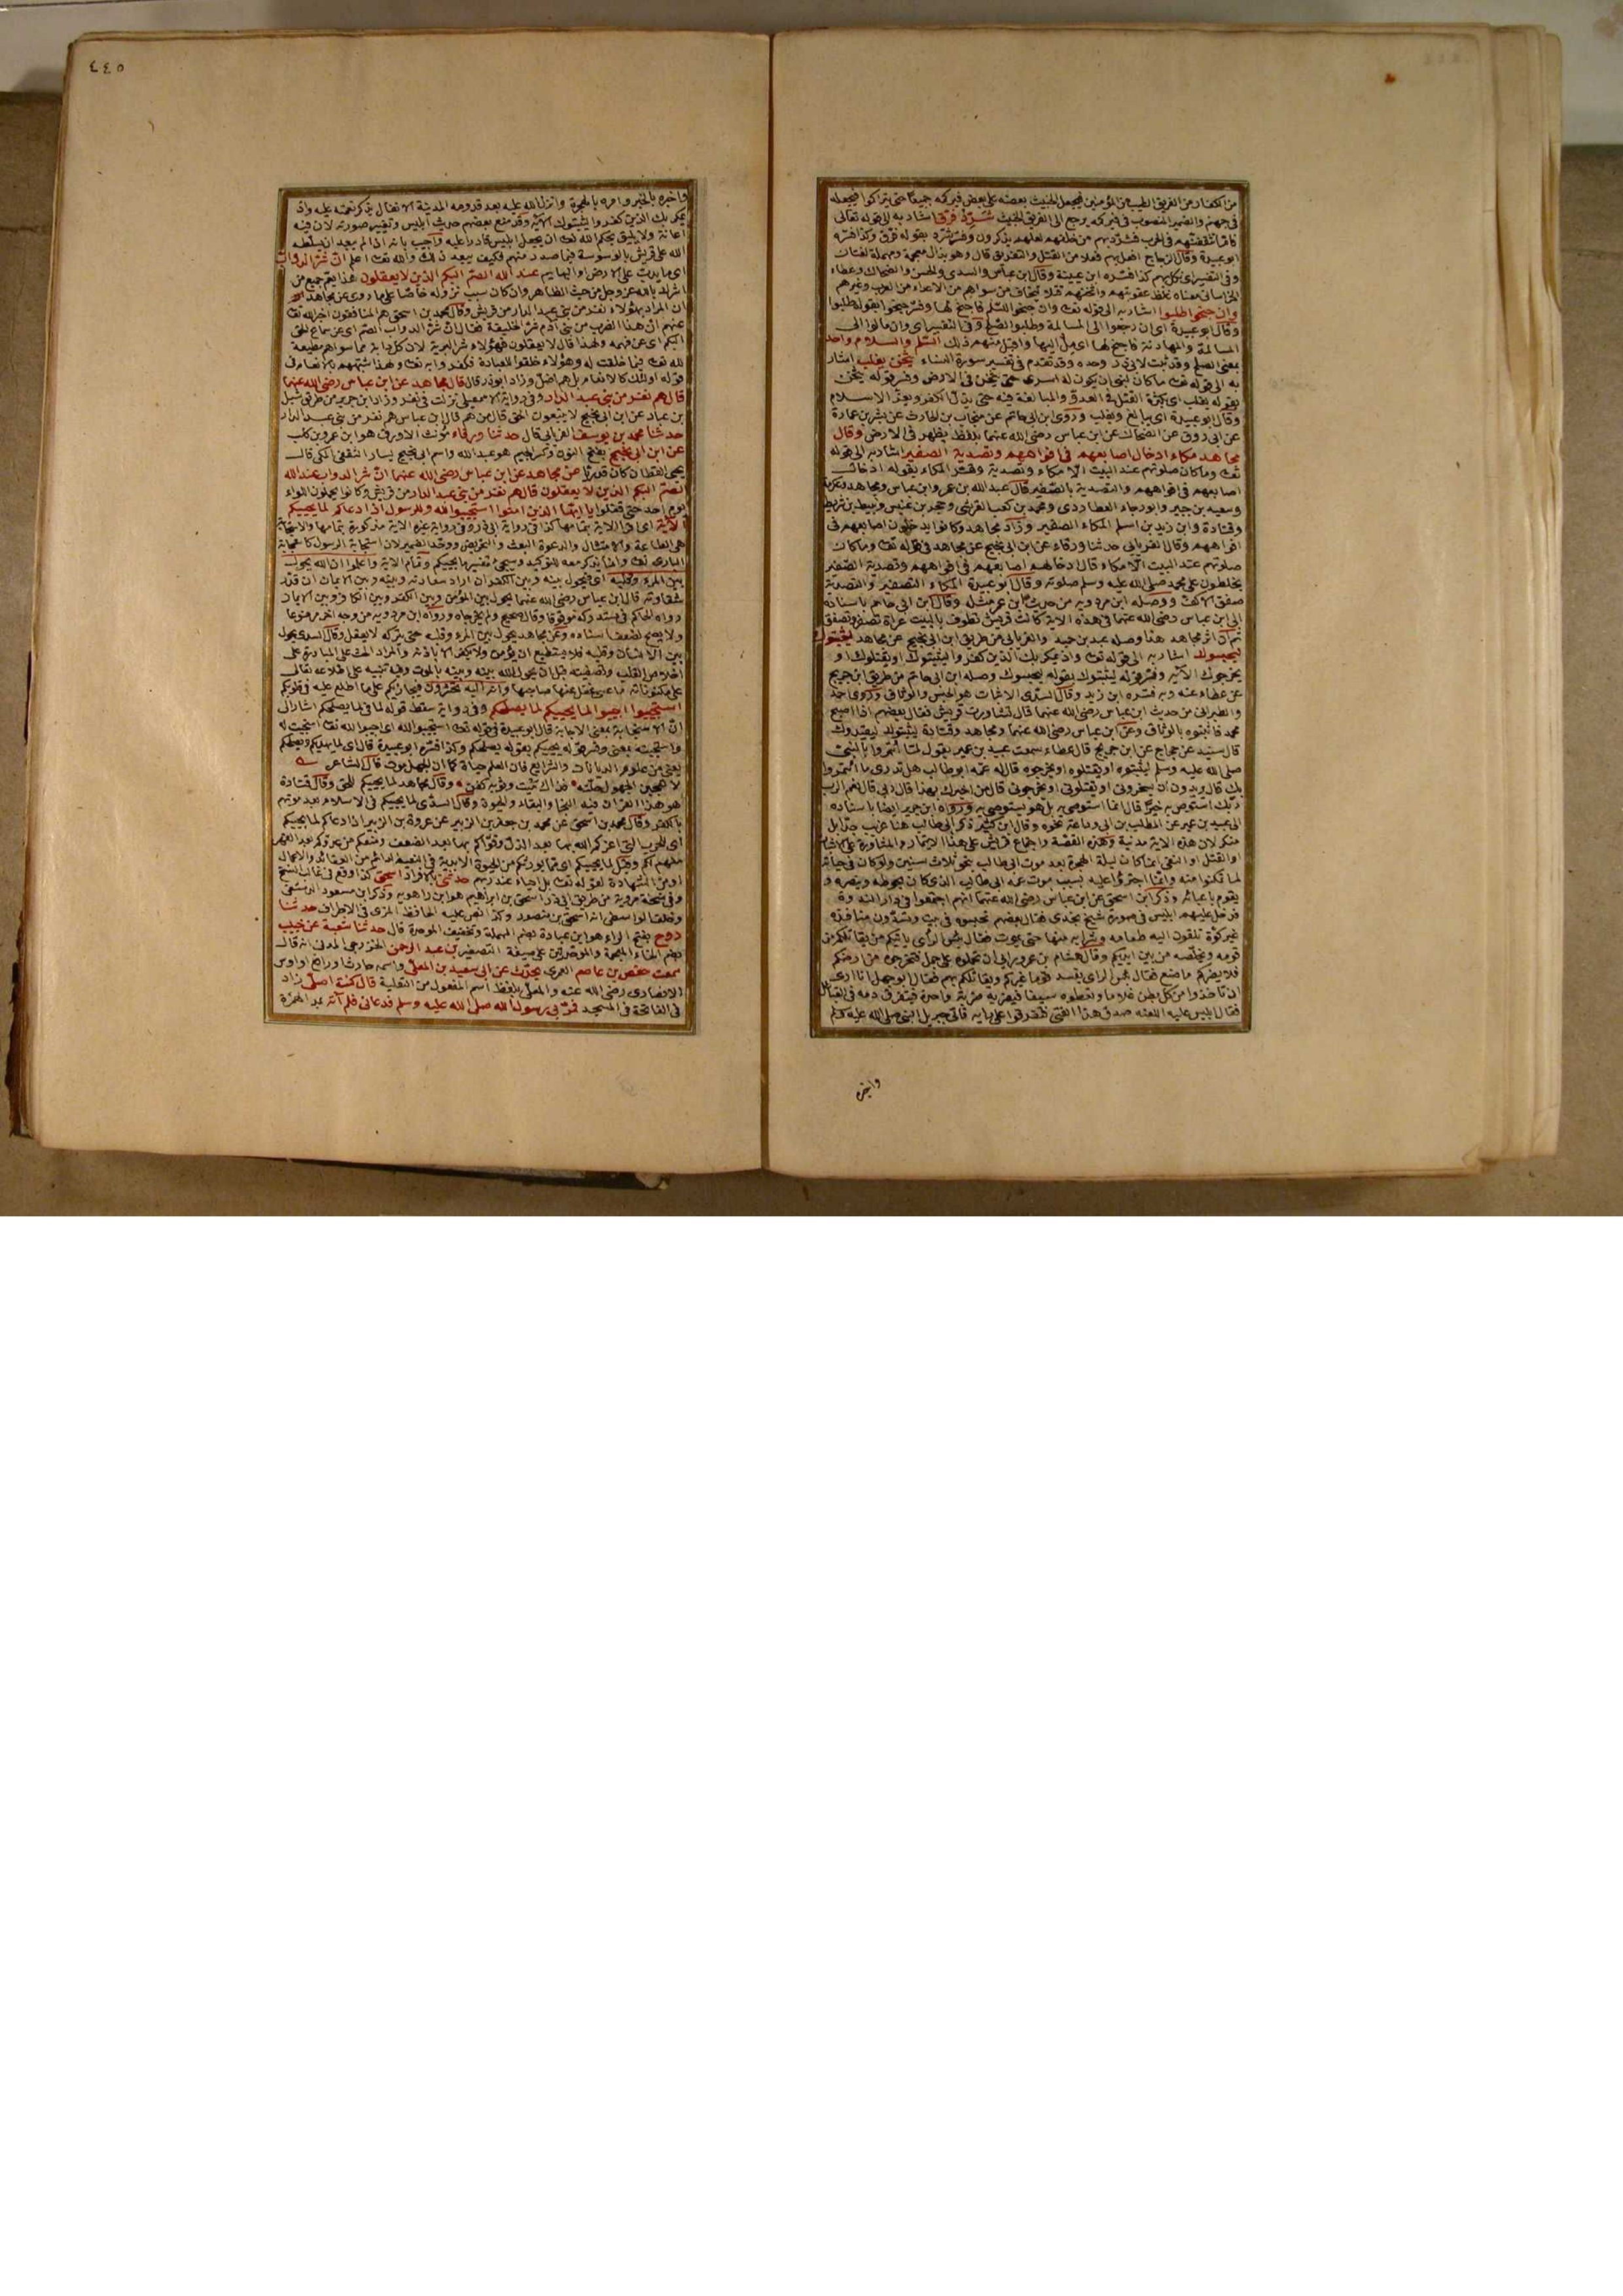 من الكفار من الفريق الطيب من المؤمنين فيجعل الخبيث بعضه على بعض فيركمه جميعا حتى يتراكموا فيجعله
في جهنم والضمير المنصوب في فيركمه يرجع الى الفريق الخبيث شرد فرق اشار به الى قوله تعالى
فاما تثقفنهم في الحرب فشرد بهم من خلفهم لعلهم يذكرون وفسر شرد بقوله فرق وكذا فسره
ابو عبيدة وقال الزجاج افعل بهم فعلا من القتل والتفريق قال وهو بذال معجمة ومهملة لغتان
وفي التفسير اي نكل بهم كذا فسره ابن عيينة وقال ابن عباس والسدي والحسن والضحاك وعطاء
الخراساني معناه غلظ عقوبتهم واثخنهم قتلا ليخاف من سواهم من الاعداء من العرب وغيرهم
وان جنحوا طلبوا اشار به الى قوله تعالى وان جنحوا للسلم فاجنح لها وفسر جنحوا بقوله طلبوا
وقال ابو عبيدة اي ان رجعوا الى المسالمة وطلبوا الصلح وفي التفسير اي وان مالوا الى
المسالمة والمهادنة فاجنح لها اي مل اليها واقبل منهم ذلك السلم والسلام واحد
به الى قوله تعالى ما كان لنبي ان يكون له اسرى حتى يثخن في الارض وفسر قوله يثخن
بقوله يغلب اي يكثر القتل في العدو والمبالغة فيه حتى يذل الكفر ويعز الاسلام
وقال ابو عبيدة اي يبالغ ويغلب وروى ابن ابي حاتم عن منجاب بن الحارث عن بشر بن عمارة
عن ابي روق عن الضحاك عن ابن عباس رضي الله عنهما بلفظ يظهر في الارض وقال
مجاهد مكاء ادخال اصابعهم في افواههم وتصدية الصفير اشار به الى قوله
تعالى وما كان صلوتهم عند البيت الا مكاء وتصدية وفسر المكاء بقوله ادخال
اصابعهم في افواههم والتصدية بالصفير قال عبد الله بن عمر وابن عباس ومجاهد وعكرمة
وسعيد بن جبير وابو رجاء العطاردي ومحمد بن كعب القرظي وحجر بن عنبس ونبيط بن شريط
وقتادة وابن زيد بن اسلم المكاء الصفير وزاد مجاهد وكانوا يدخلون اصابعهم في
افواههم وقال الفريابي حدثنا ورقاء عن ابن ابي نجيح عن مجاهد في قوله تعالى وما كان
صلوتهم عند البيت الا مكاء قال ادخالهم اصابعهم في افواههم وتصدية الصفير
يخلطون على محمد صلى الله عليه وسلم صلوته وقال ابو عبيدة المكاء الصفير والتصدية
صفق الاكف ووصله ابن مردويه من حديث ابن عمر مثله وقال ابن ابي حاتم باسناده
الى ابن عباس رضي الله عنهما في هذه الاية كانت قريش تطوف بالبيت عراة تصفر وتصفق
ثم ان اثر مجاهد هذا وصله عبد بن حميد والفريابي من طريق ابن ابي نجيح عن مجاهد ليثبتوك
ليحبسوك اشار به الى قوله تعالى واذ يمكر بك الذين كفروا ليثبتوك او يقتلوك او
يخرجوك الاية وفسر قوله ليثبتوك بقوله ليحبسوك وصله ابن ابي حاتم من طريق ابن جريج
عن عطاء عنه وبه فسره ابن زيد وقال السدي الاثبات هو الحبس والوثاق وروى احمد
والطبراني من حديث ابن عباس رضي الله عنهما قال تشاورت قريش فقال بعضهم اذا اصبح
محمد فاثبتوه بالوثاق وعن ابن عباس رضي الله عنهما ومجاهد وقتادة ليثبتوك ليقيدوك
قال سنيد عن حجاج عن ابن جريج قال عطاء سمعت عبيد بن عمير يقول لما ائتمروا بالنبي
صلى الله عليه وسلم ليثبتوه او يقتلوه او يخرجوه قال له عمه ابو طالب هل تدري ما ائتمروا
بك قال يريدون ان يسجنوني او يقتلوني او يخرجوني قال من اخبرك بهذا قال ربي قال نعم الرب
ربك استوص به خيرا قال انا استوصي به بل هو يستوصي بي ورواه ابن جرير ايضا باسناده
الى عبيد بن عمير عن المطلب بن ابي وداعة نحوه وقال ابن كثير ذكر ابي طالب هنا غريب جدا بل
منكر لان هذه الاية مدنية وهذه القصة واجتماع قريش على هذا الائتمار والمشاورة على الاثبات
او القتل او النفي انما كان ليلة الهجرة بعد موت ابي طالب بنحو ثلاث سنين ولو كان في حياته
لما تمكنوا منه وانما اجترؤا عليه بسبب موت عمه ابي طالب الذي كان يحوطه وينصره و
يقوم باعبائه وذكر ابن اسحق عن ابن عباس رضي الله عنهما انهم اجتمعوا في دار الندوة
فدخل عليهم ابليس في صورة شيخ نجدي فقال بعضهم نحبسوه في بيت وتشدون منافذه
غير كوة تلقون اليه طعامه وشرابه منها حتى يموت فقال بئس الراي ياتيكم من يقاتلكم من
قومه ويخلصه من بين ايديكم وقال هشام بن عمرو رايي ان تحملوه على جمل فتخرجوه من ارضكم
فلا يضركم ما صنع فقال بئس الراي يفسد قوما غيركم ويقاتلكم بهم فقال ابو جهل انا ارى
ان تاخذوا من كل بطن غلاما وتعطوه سيفا فيضربه ضربة واحدة فيتفرق دمه في القبائل
فقال ابليس عليه اللعنة صدق هذا الفتى فتفرقوا على رايه فاتى جبريل النبي صلى الله عليه وسلم
واخبره
٤٤٥
واخبره بالخبر وامره بالهجرة وانزل الله عليه بعد قدومه المدينة الانفال يذكر نعمته عليه واذ
يمكر بك الذين كفروا ليثبتوك الاية وقد منع بعضهم حديث ابليس وتغيير صورته لان فيه
اعانة ولا يليق بحكم الله تعالى ان يجعل ابليس قادرا عليه واجيب بانه اذا لم يبعد ان يسلطه
الله على قريش بالوسوسة فيما صدر منهم فكيف يبعد ذلك والله تعالى اعلم ان شر الدواب
اي ما يدب على الارض او البهايم عند الله الصم البكم الذين لا يعقلون هذا يعم جميع من
اشرك بالله عز وجل من حيث الظاهر وان كان سبب نزوله خاصا على ما روى عن مجاهد
ان المراد بهؤلاء نفر من بني عبد الدار من قريش وقال محمد بن اسحق هم المنافقون اخبر الله تعالى
عنهم ان هذا الضرب من بني ادم شر الخليقة فقال ان شر الدواب الصم اي عن سماع الحق
البكم اي عن فهمه ولهذا قال لا يعقلون فهؤلاء شر البرية لان كل دابة مما سواهم مطيعة
لله تعالى فيما خلقت له وهؤلاء خلقوا للعبادة فكفروا به تعالى ولهذا شبههم بالانعام في
قوله اولئك كالانعام بل هم اضل وزاد ابو ذر قال قال مجاهد عن ابن عباس رضي الله عنهما
قال هم نفر من بني عبد الدار وفي رواية الاسمعيلي نزلت في نفر وزاد ابن جرير من طريق شبل
بن عباد عن ابن ابي نجيح لا يتبعون الحق قال من هم قال ابن عباس هم نفر من بني عبد الدار
حدثنا محمد بن يوسف الفريابي قال حدثنا ورقاء مؤنث الاورق هو ابن عمرو بن كليب
عن ابن ابي نجيح بفتح النون وكسر الجيم هو عبد الله واسم ابي نجيح يسار الثقفي المكي قال
يحيى القطان كان قدريا عن مجاهد عن ابن عباس رضي الله عنهما ان شر الدواب عند الله
الصم البكم الذين لا يعقلون قال هم نفر من بني عبد الدار من قريش وكانوا يحملون اللواء
يوم احد حتى قتلوا يا ايها الذين امنوا استجيبوا لله وللرسول اذا دعاكم لما يحييكم
الاية اي اقرا الاية بتمامها كذا في رواية ابي ذر وفي رواية غيره الاية مذكورة بتمامها والاستجابة
هي الطاعة والامتثال والدعوة البعث والتحريض ووحد الضمير لان استجابة الرسول كاستجابة
الباري تعالى وانما يذكر معه للتوكيد وسيجئ تفسير ما يحييكم وتمام الاية واعلموا ان الله يحول
بين المرء وقلبه اي يحول بينه وبين الكفر ان اراد سعادته وبينه وبين الايمان ان قدر
شقاوته قال ابن عباس رضي الله عنهما يحول بين المؤمن وبين الكفر وبين الكافر وبين الايمان
رواه الحاكم في مستدركه موقوفا وقال صحيح ولم يخرجاه ورواه ابن مردويه من وجه اخر مرفوعا
ولا يصح لضعف اسناده وعن مجاهد يحول بين المرء وقلبه حتى يتركه لا يعقل وقال السدي يحول
بين الانسان وقلبه فلا يستطيع ان يؤمن ولا يكفر الا باذنه والمراد الحث على المبادرة على
اخلاص القلب وتصفيته قبل ان يحول الله بينه وبينه بالموت وفيه تنبيه على اطلاعه تعالى
على مكنوناته ما عسى يغفل عنها صاحبها وانه اليه تحشرون فيجازيكم على ما اطلع عليه في قلوبكم
استجيبوا اجيبوا لما يحييكم لما يصلحكم وفي رواية سقط قوله لما في لما يصلحكم اشار الى
ان الاستجابة بمعنى الاجابة قال ابو عبيدة في قوله تعالى استجيبوا لله اي اجيبوا لله تعالى استجبت له
واستجبته بمعنى وفسر قوله يحييكم بقوله يصلحكم وكذا فسره ابو عبيدة قال اي لما يهديكم ويصلحكم
يعني من علوم الديانات والشرايع فان العلم حياة كما ان الجهل موت قال الشاعر
لا تعجبن الجهول حلته فذاك ميت وثوبه كفن وقال مجاهد لما يحييكم للحق وقال قتادة
هو هذا القران فيه النجاة والبقاء والحيوة وقال السدي لما يحييكم في الاسلام بعد موتهم
بالكفر وقال محمد بن اسحق عن محمد بن جعفر بن الزبير عن عروة بن الزبير اذا دعاكم لما يحييكم
اي للحرب التي اعزكم الله بها بعد الذل وقواكم بها بعد الضعف ومنعكم من عدوكم بعد القهر
منهم لكم وقيل لما يحييكم اي مما يورثكم من الحيوة الابدية في النعيم الدائم من العقائد والاعمال
او من الشهادة لقوله تعالى بل احياء عند ربهم حدثني بالافراد اسحق كذا وقع في غالب النسخ
وفي نسخة مروية من طريق ابي ذر اسحق بن ابراهيم هو ابن راهويه وذكر ابن مسعود الدمشقي
وخلف الواسطي انه اسحق بن منصور وكذا نص عليه الحافظ المزي في الاطراف حدثنا
روح بفتح الراء هو ابن عبادة بضم المهملة وتخفيف الموحدة قال حدثنا شعبة عن خبيب
بضم الخاء المعجمة والموحدتين على صيغة التصغير بن عبد الرحمن الخزرجي المدني انه قال
سمعت حفص بن عاصم العمري يحدث عن ابي سعيد بن المعلى واسمه حارث او رافع او اوس
الانصاري رضي الله عنه والمعلى بلفظ اسم المفعول من التعلية قال كنت اصلي زاد
في الفاتحة في المسجد فمر بي رسول الله صلى الله عليه وسلم فدعاني فلم آته بمد الهمزة